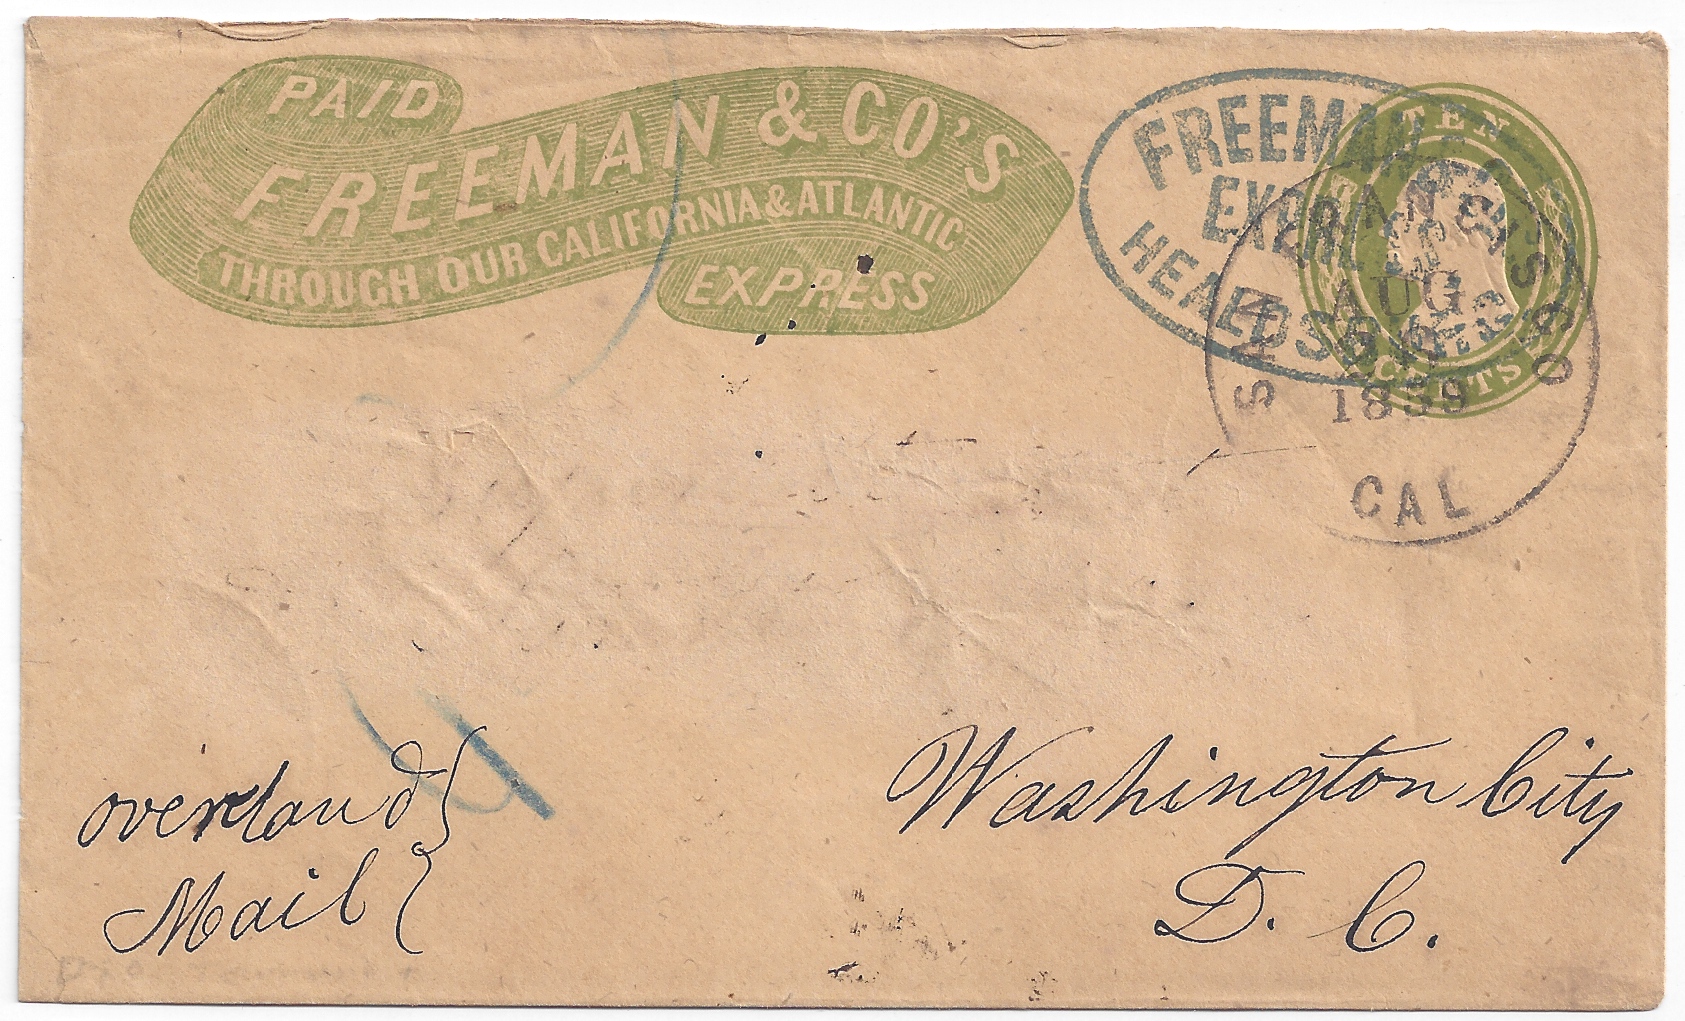 PAID
FREEMAN & CO'S
THROUGH OUR CALIFORNIA & ATLANTIC
EXPRESS
TEN
CENTS
FREEMAN
HEALDSB
SAN FRANCISCO
AUG
1859
CAL
overland
Mail
Washington City
D. C.